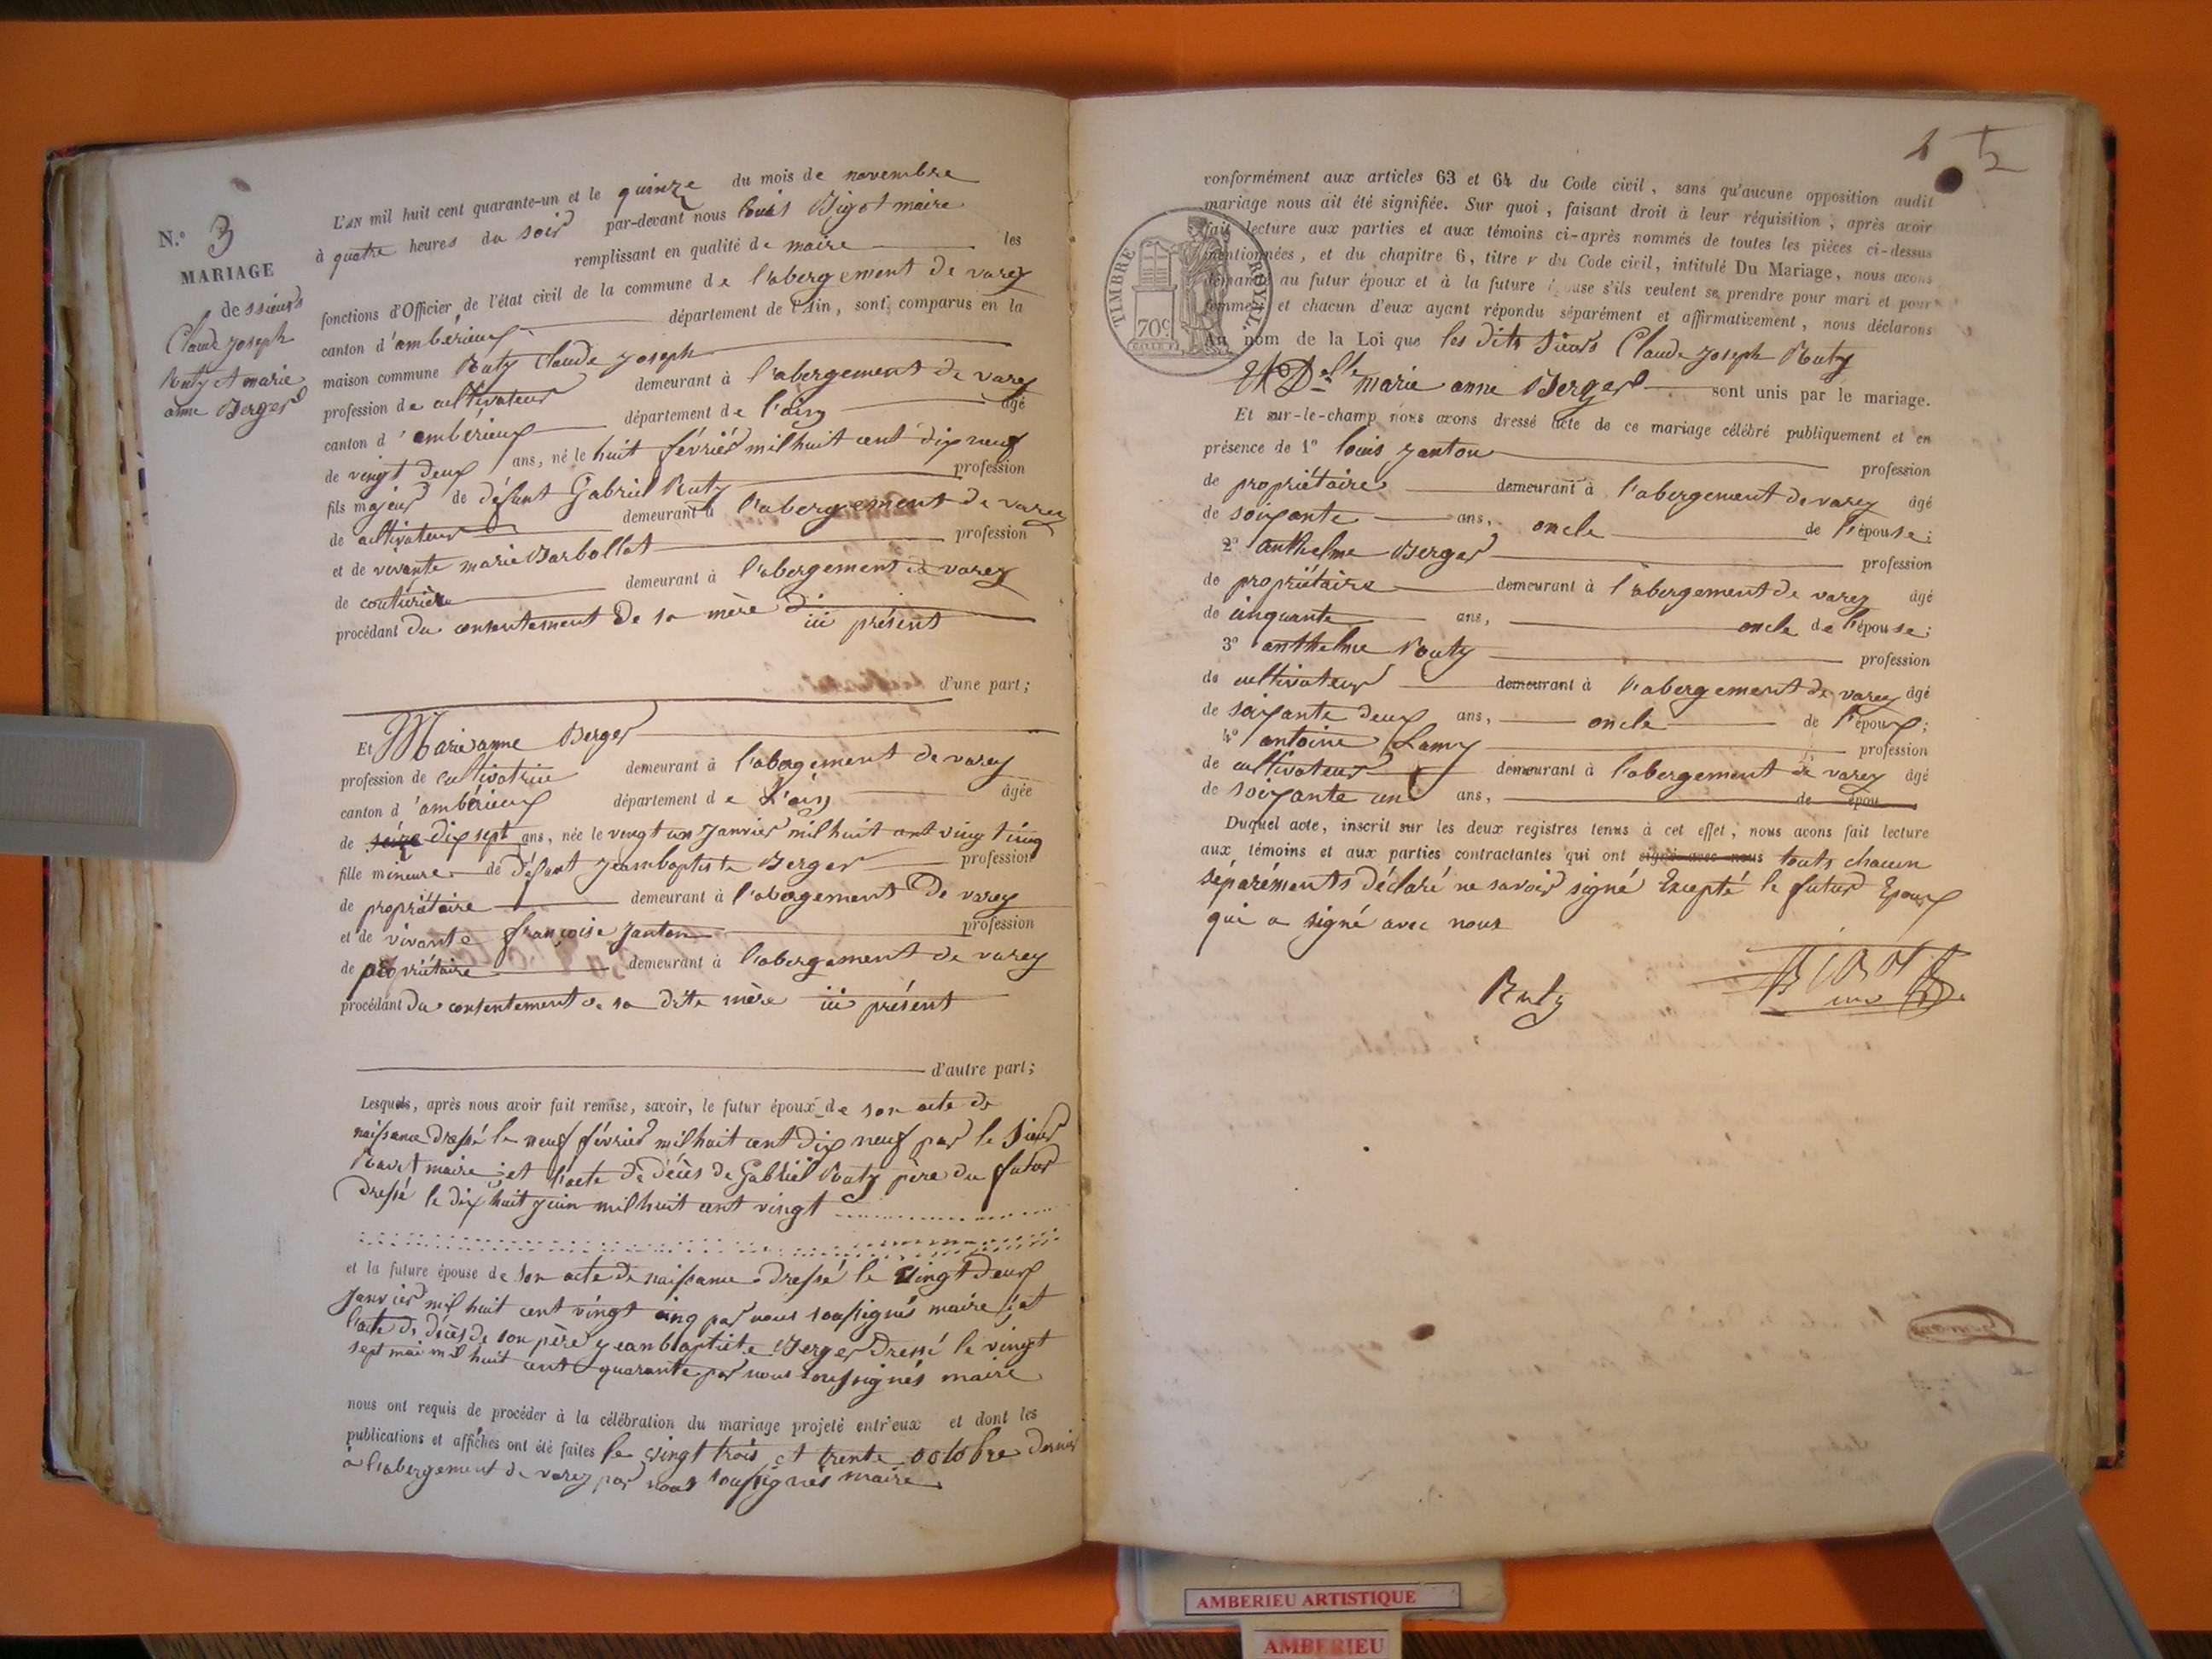 N.º 3
MARIAGE
de ssieurs
Claude Joseph
Ruty et marie
anne Berger
L'AN mil huit cent quarante-un et le quinze du mois de novembre
à quatre heures du soir par-devant nous Louis Bigot maire
remplissant en qualité de maire les
fonctions d'Officier de l'état civil de la commune de l'abergement de varey
canton d'ambérieux département de l'Ain, sont comparus en la
maison commune Ruty Claude Joseph
profession de cultivateur demeurant à l'abergement de varey
canton d'ambérieux département de l'ain âgé
de vingt deux ans, né le huit février mil huit cent dix neuf
fils majeur de défunt Gabriel Ruty profession
de cultivateur demeurant à l'abergement de varey
et de vivante marie Barbollat profession
de couturière demeurant à l'abergement de varey
procédant du consentement de sa mère ici présent
d'une part;
Et Marie anne Berger
profession de cultivatrice demeurant à l'abergement de varey
canton d'ambérieux département de L'ain âgée
de seize dix sept ans, née le vingt un Janvier mil huit cent vingt cinq
fille mineure de défunt Jeanbaptiste Berger profession
de propriétaire demeurant à l'abergement De varey
et de vivante françoise Janton profession
de propriétaire demeurant à l'abergement de varey
procédant du consentement de sa dite mère ici présent
d'autre part;
Lesquels, après nous avoir fait remise, savoir, le futur époux de son acte de
naissance dressé le neuf février mil huit cent dix neuf par le Sieur
maire; et l'acte de décès de Gabriel Ruty père du futur
dressé le dix huit juin mil huit cent vingt
et la future épouse de son acte de naissance dressé le vingt deux
Janvier mil huit cent vingt cinq par nous soussignés maire; et
l'acte de décès de son père Jeanbaptiste Berger dressé le vingt
sept mai mil huit cent quarante par nous soussignés maire
nous ont requis de procéder à la célébration du mariage projeté entr'eux et dont les
publications et affiches ont été faites le vingt trois et trente octobre dernier
à l'abergement de varey par nous soussignés maire
conformément aux articles 63 et 64 du Code civil, sans qu'aucune opposition audit
mariage nous ait été signifiée. Sur quoi, faisant droit à leur réquisition, après avoir
fait lecture aux parties et aux témoins ci-après nommés de toutes les pièces ci-dessus
mentionnées, et du chapitre 6, titre v du Code civil, intitulé Du Mariage, nous avons
demandé au futur époux et à la future épouse s'ils veulent se prendre pour mari et pour
femme; et chacun d'eux ayant répondu séparément et affirmativement, nous déclarons
Au nom de la Loi que les dits Sieurs Claude Joseph Ruty
TIMBRE ROYAL.
70c
Et Delle marie anne Berger sont unis par le mariage.
Et sur-le-champ nous avons dressé acte de ce mariage célébré publiquement et en
présence de 1º louis Janton profession
de propriétaire demeurant à l'abergement de varey âgé
de soixante ans, oncle de l'épouse;
2º anthelme Berger profession
de propriétaire demeurant à l'abergement de varey âgé
de cinquante ans, oncle de l'épouse;
3º anthelme Routy profession
de cultivateur demeurant à l'abergement de varey âgé
de soixante deux ans, oncle de l'époux;
4º antoine Lamy profession
de cultivateur demeurant à l'abergement de varey âgé
de soixante un ans, de épou
Duquel acte, inscrit sur les deux registres tenus à cet effet, nous avons fait lecture
aux témoins et aux parties contractantes qui ont signé avec nous touts chacun
séparéments déclaré ne savoir signé Excepté le futur Epoux
qui a signé avec nous
Ruty
BIGOT
AMBERIEU ARTISTIQUE
AMBERIEU